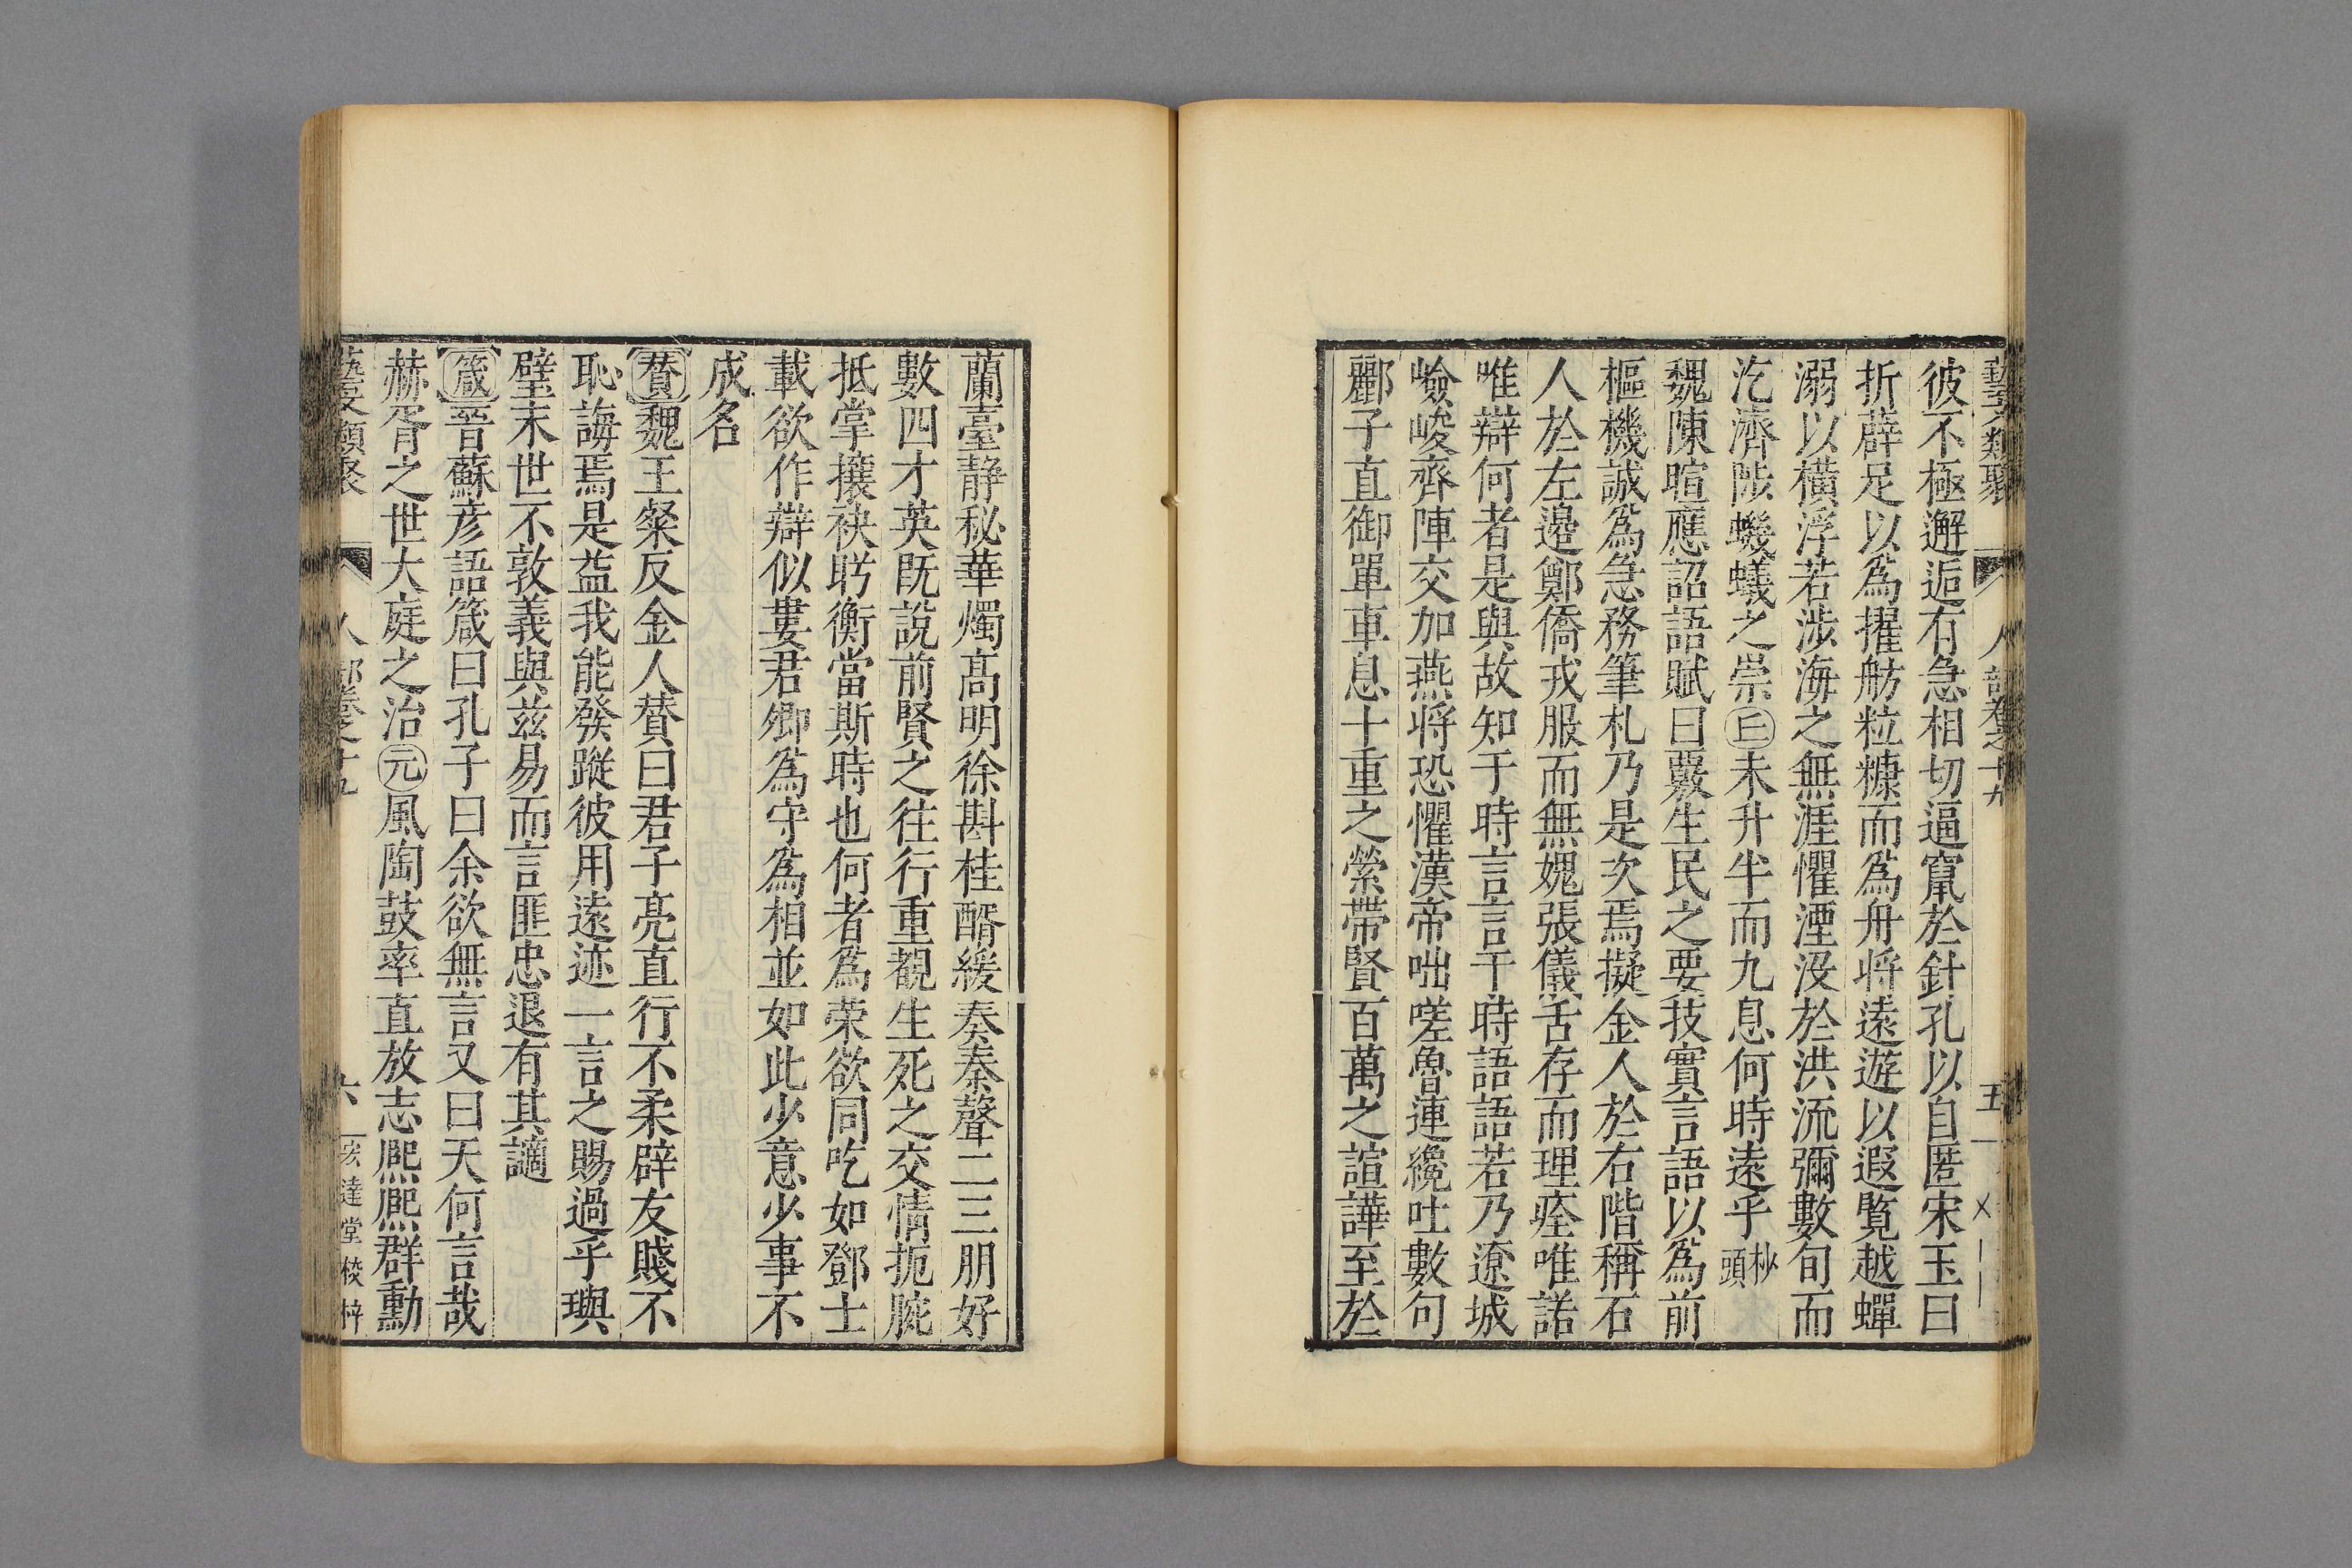 藝文類聚 人部卷之十九 五
彼不極邂逅有急相切逼竄於針孔以自匿宋玉曰
折薜足以為擢舫粒糠而為舟將遠遊以遐覽越蟬
溺以橫浮若涉海之無涯懼湮没於洪流彌數旬而
汔濟陟蟣蟻之崇丘未升半而九息何時遠乎杪頭
魏陳暄應詔語賦曰覈生民之要技實言語以為前
樞機誠為急務筆札乃是次焉擬金人於右階稱石
人於左邉鄭僑戎服而無媿張儀舌存而理痊唯諾
唯辯何者是與故知于時言言干時語語若乃遼城
嶮峻齊陣交加燕将恐懼漢帝咄嗟魯連纔吐數句
酈子直御單車息十重之縈帶賢百萬之諠譁至於
蘭臺静秘華燭髙明徐斟桂醑緩奏秦聲二三朋好
數四才英既説前賢之往行重覩生死之交情扼腕
抵掌攘袂盱衡當斯時也何者為荣欲同吃如鄧士
載欲作辯似婁君卿為守為相並如此少意少事不
成名
贊魏王粲反金人贊曰君子亮直行不柔辟友賤不
恥誨焉是益我能發蹤彼用遠迹一言之賜過乎璵
璧末世不敦義與兹易而言匪忠退有其讁
箴晉蘇彦語箴曰孔子曰余欲無言又曰天何言哉
赫胥之世大庭之治元風陶鼓率直放志熈熈群動
藝文類聚 人部卷之十九 六 宏達堂校梓